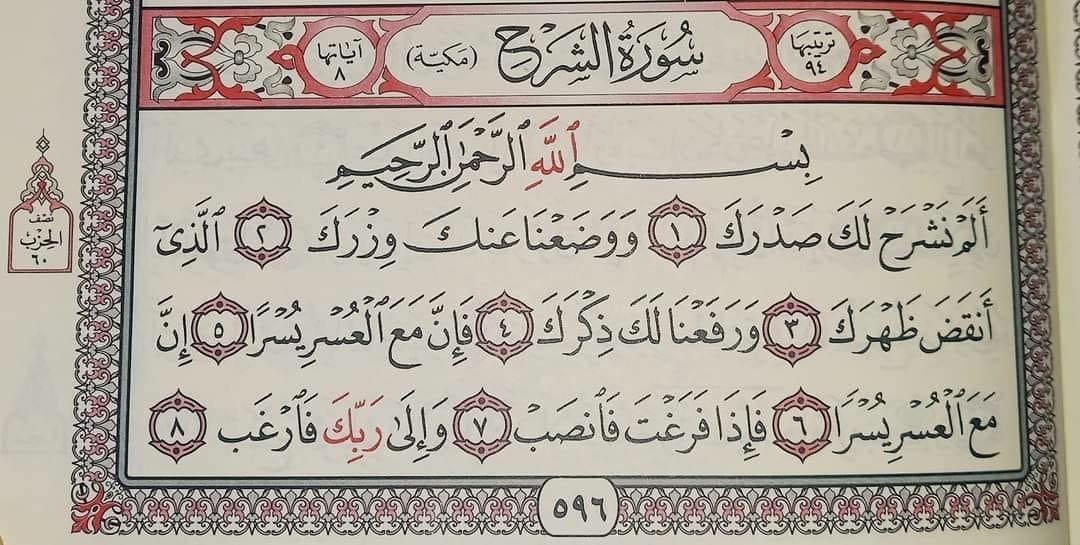 ترتيبها ٩٤ سُورَةُ الشَّرْحِ (مكيّة) آيَاتها ٨
بِسْمِ ٱللَّهِ ٱلرَّحْمَٰنِ ٱلرَّحِيمِ
أَلَمْ نَشْرَحْ لَكَ صَدْرَكَ ١ وَوَضَعْنَا عَنكَ وِزْرَكَ ٢ ٱلَّذِىٓ
أَنقَضَ ظَهْرَكَ ٣ وَرَفَعْنَا لَكَ ذِكْرَكَ ٤ فَإِنَّ مَعَ ٱلْعُسْرِ يُسْرًا ٥ إِنَّ
مَعَ ٱلْعُسْرِ يُسْرًا ٦ فَإِذَا فَرَغْتَ فَٱنصَبْ ٧ وَإِلَىٰ رَبِّكَ فَٱرْغَب ٨
نصْف
الحِزْبْ
٦٠
٥٩٦